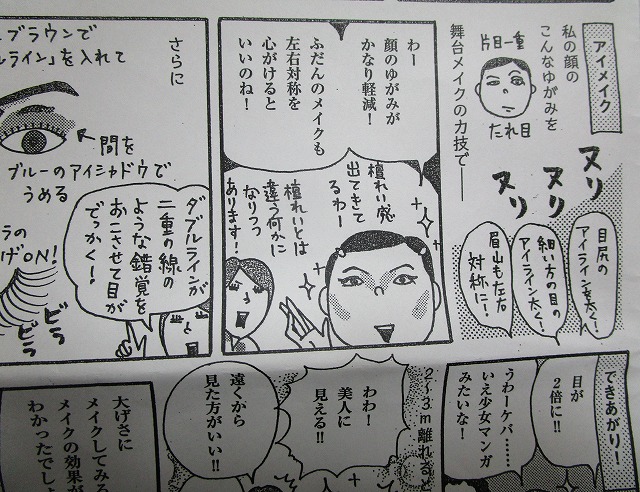 アイメイク
私の顔の
こんなゆがみを
片目一重
たれ目
舞台メイクの力技で──
ヌリ
ヌリ
ヌリ
目尻の
アイラインを太く!
細い方の目の
アイライン太く!
眉山も左右
対称に!
わー
顔のゆがみが
かなり軽減!
ふだんのメイクも
左右対称を
心がけると
いいのね!
檀れい感
出てきて
るわー
檀れいとは
違う何かに
なりつつ
あります!
さらに
ブラウンで
ルライン」を入れて
間を
ブルーのアイシャドウで
うめる
ダブルラインが
二重の線の
ような錯覚を
おこさせて目が
でっかく!
ラの
げON!
ビラ
ビラ
できあがりー!
目が
2倍に!!
うわーケバ……
いえ少女マンガ
みたいな!
2〜3m離れると
わわ!
美人に
見える!!
遠くから
見た方がいい!!
大げさに
メイクしてみる
メイクの効果が
わかったでしょ